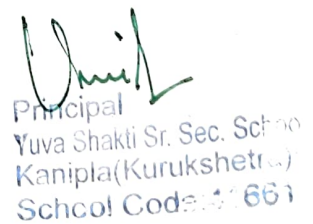 Principal
Yuva Shakti Sr. Sec.
Kanipla(Kurukshetra)
School Code